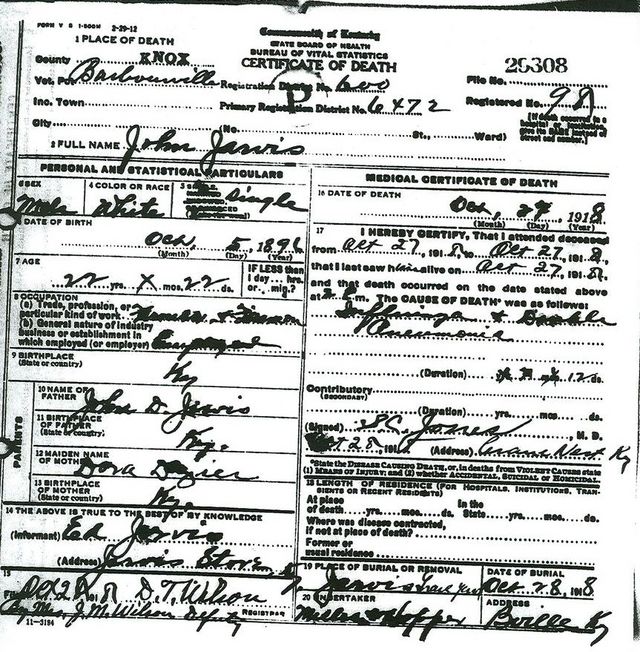 FORM V S 1-500M 2-29-12
Commonwealth of Kentucky
STATE BOARD OF HEALTH
BUREAU OF VITAL STATISTICS
CERTIFICATE OF DEATH
1 PLACE OF DEATH
County KNOX
Vot. Pct Barbourville Registration District No. 600
File No. 26308
Inc. Town Primary Registration District No. 6472
Registered No. 98
City (No. St., Ward)
[If death occurred in a hospital or institution, give its NAME instead of street and number.]
2 FULL NAME John Jarvis
PERSONAL AND STATISTICAL PARTICULARS
3 SEX Male
4 COLOR OR RACE White
5 Single
6 DATE OF BIRTH
Oct. 5, 1896
(Month) (Day) (Year)
7 AGE
22 yrs. X mos. 22 ds.
IF LESS than 1 day... hrs. or... mig.?
8 OCCUPATION
(a) Trade, profession, or particular kind of work
(b) General nature of industry business or establishment in which employed (or employer) Employed
9 BIRTHPLACE
(State or country) Ky
PARENTS
10 NAME OF FATHER John D. Jarvis
11 BIRTHPLACE OF FATHER
(State or country) Ky.
12 MAIDEN NAME OF MOTHER Dora Dozier
13 BIRTHPLACE OF MOTHER
(State or country) Ky.
14 THE ABOVE IS TRUE TO THE BEST OF MY KNOWLEDGE
(Informant) Ed Jarvis
(Address) Jarvis Store
15
Oct 28 1918 D. T. Wilson
REGISTRAR
By Mrs. J. M. Wilson Deputy
11-3184
MEDICAL CERTIFICATE OF DEATH
16 DATE OF DEATH
Oct. 27, 1918
(Month) (Day) (Year)
17 I HEREBY CERTIFY, That I attended deceased
from Oct 27, 1918, to Oct 27, 1918,
that I last saw him alive on Oct 27, 1918,
and that death occurred on the date stated above
at m. The CAUSE OF DEATH* was as follows:
Influenza & Double
Pneumonia
(Duration) yrs. mos. 12 ds.
Contributory
(SECONDARY)
(Duration) yrs. mos. ds.
(Signed) Jones, M. D.
Oct 28, 191 (Address) Ky
*State the DISEASE CAUSING DEATH, or, in deaths from VIOLENT CAUSES state (1) MEANS OF INJURY; and (2) whether ACCIDENTAL, SUICIDAL OR HOMICIDAL.
18 LENGTH OF RESIDENCE (FOR HOSPITALS, INSTITUTIONS, TRANSIENTS OR RECENT RESIDENTS)
At place of death yrs. mos. ds. In the State yrs. mos. ds.
Where was disease contracted, if not at place of death?
Former or usual residence
19 PLACE OF BURIAL OR REMOVAL
Jarvis
DATE OF BURIAL
Oct 28, 1918
20 UNDERTAKER
Hopper
ADDRESS
Bville Ky